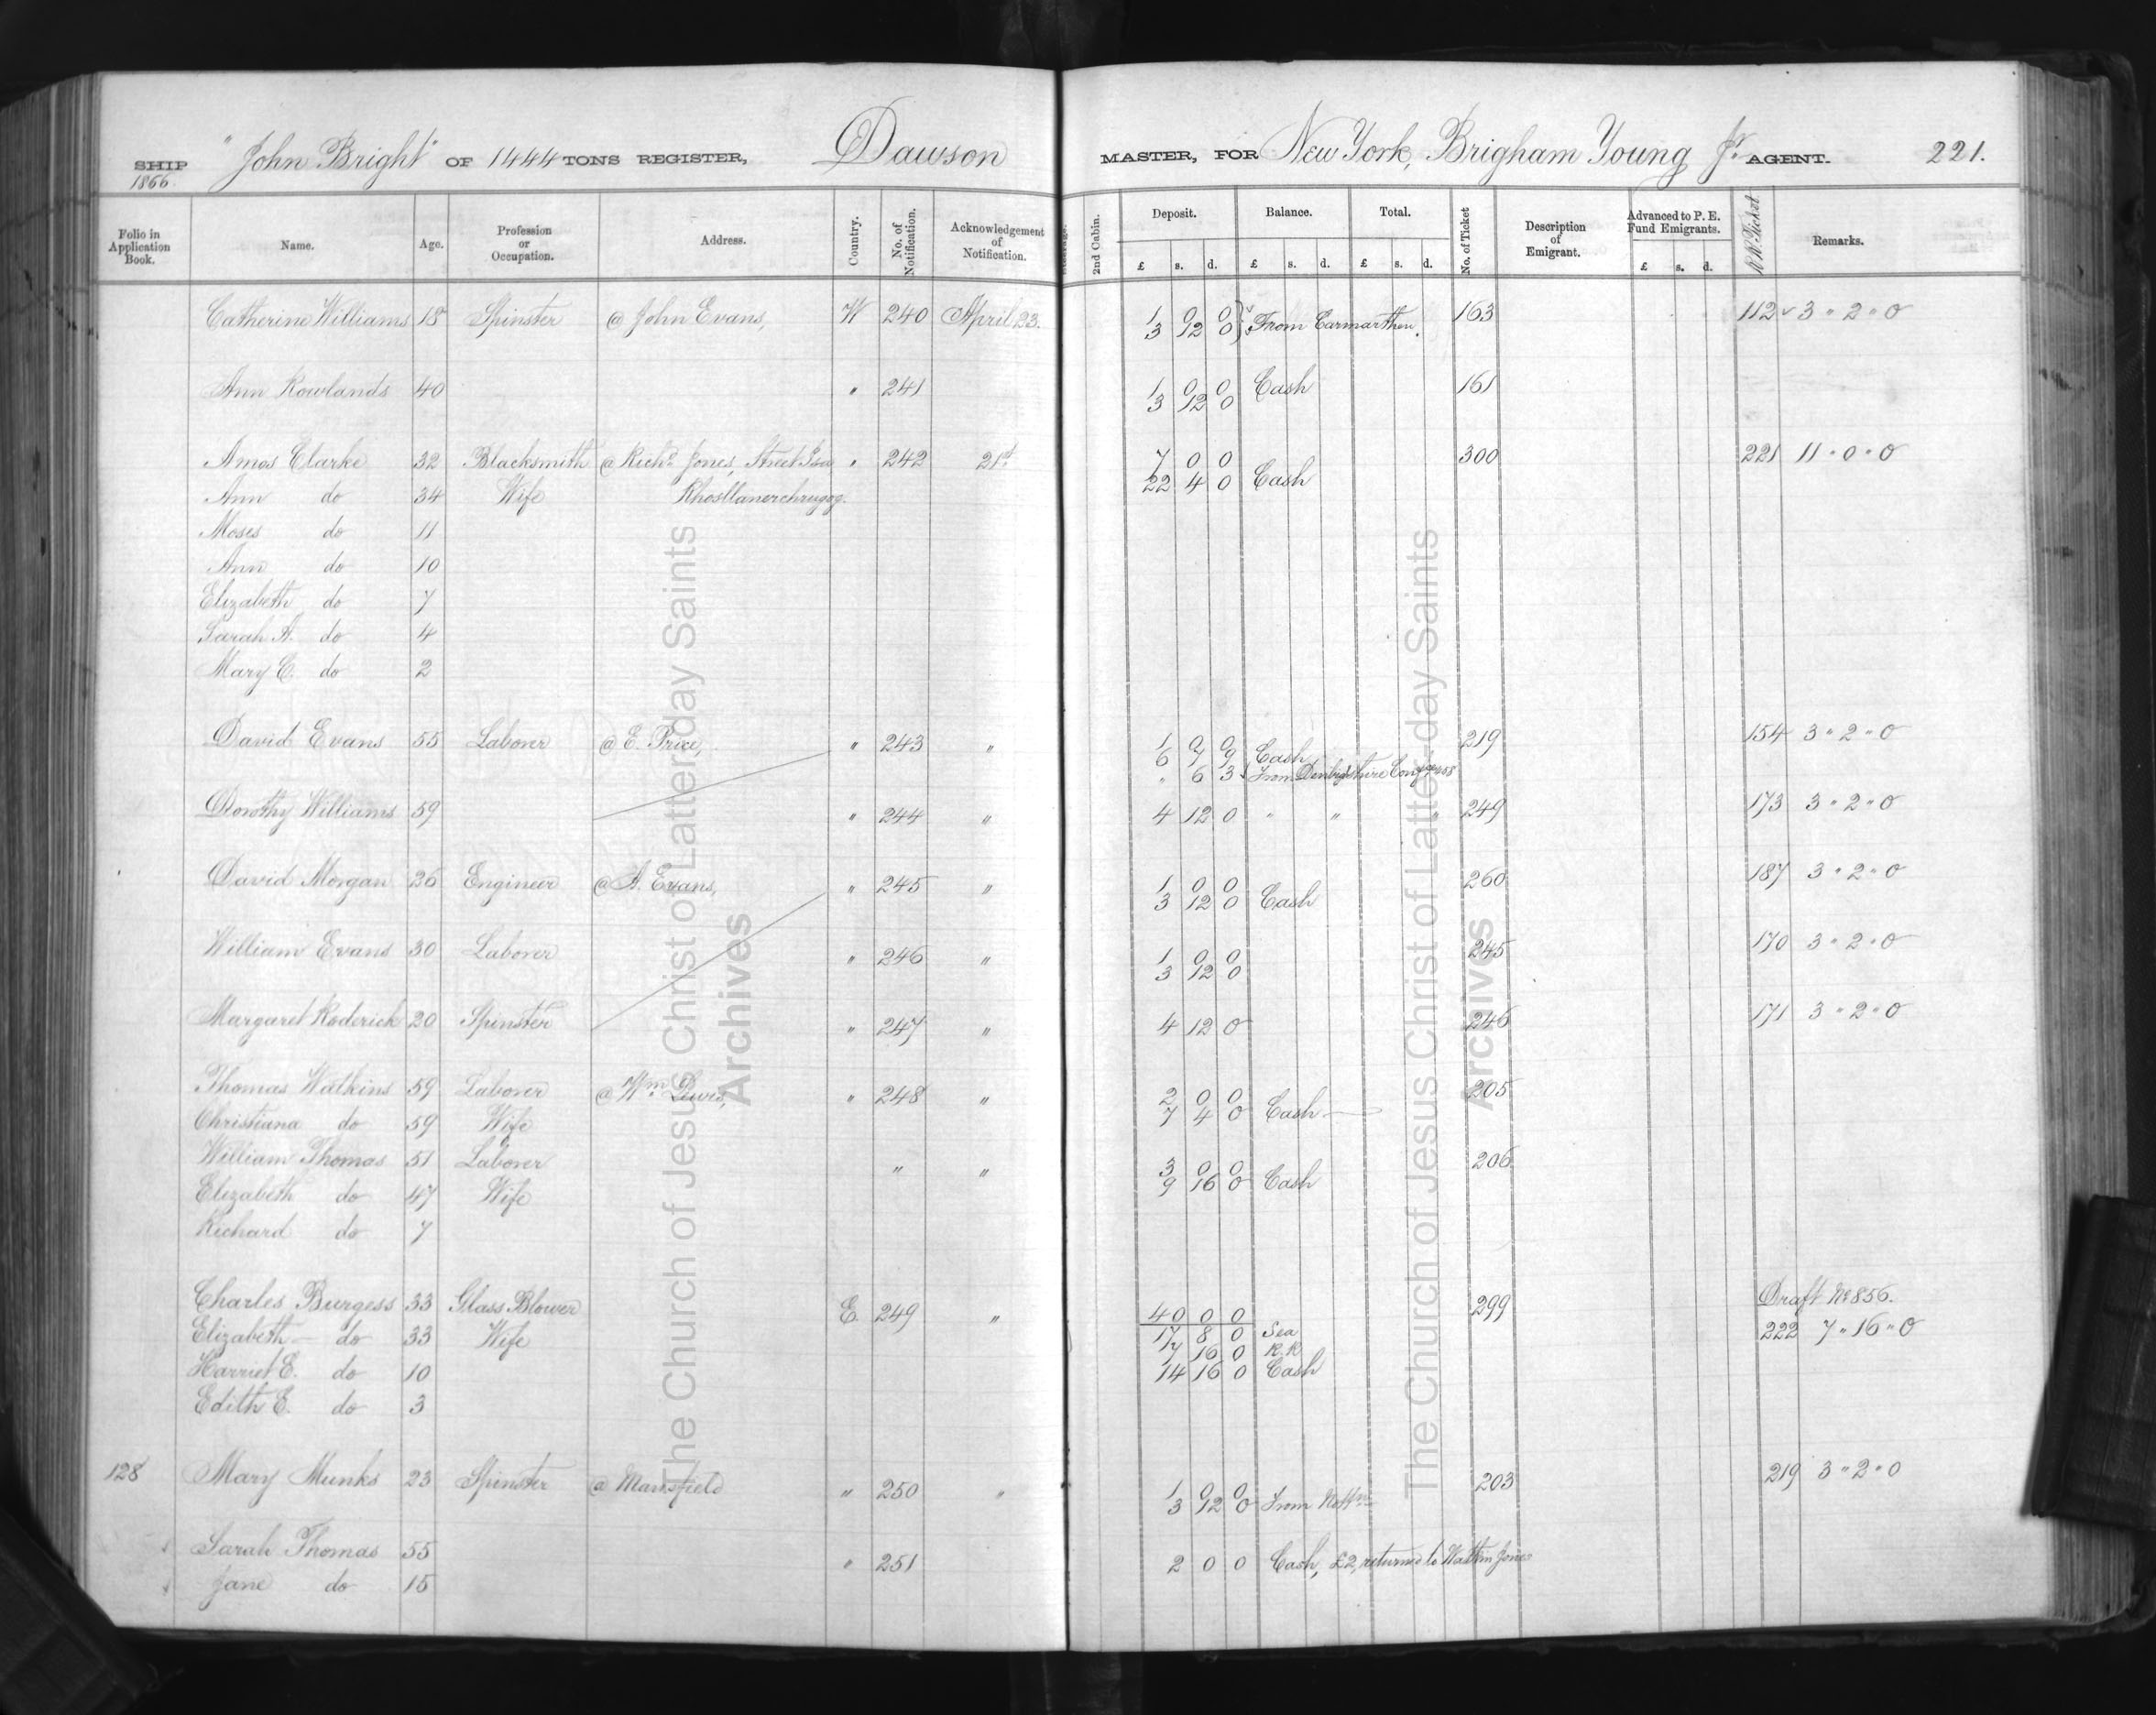 SHIP "John Bright" OF 1444 TONS REGISTER, Dawson MASTER, FOR New York, Brigham Young Jr. AGENT. 221.
1866.
Folio in Application Book. Name. Age. Profession or Occupation. Address. Country. No. of Notification. Acknowledgement of Notification. 2nd Cabin. Deposit. £ s. d. Balance. £ s. d. Total. £ s. d. No. of Ticket Description of Emigrant. Advanced to P. E. Fund Emigrants. £ s. d. RR Ticket Remarks.
Catherine Williams 18 Spinster @ John Evans, W 240 April 23. 1 0 0 From Carmarthen. 163 112 3 " 2 " 0
3 12 0
Ann Rowlands 40 " 241 1 0 0 Cash 161
3 12 0
Amos Clarke 32 Blacksmith @ Richd. Jones, Street " 242 21st 7 0 0 300 221 11 " 0 " 0
Ann do 34 Wife Rhosllanerchrugog. 22 4 0 Cash
Moses do 11
Ann do 10
Elizabeth do 7
Sarah A. do 4
Mary E. do 2
David Evans 55 Laborer @ E. Price, " 243 " 1 0 0 219 154 3 " 2 " 0
6 7 9 Cash
" 6 3 From Denbighshire Conf
Dorothy Williams 59 " 244 " 4 12 0 " " " 249 173 3 " 2 " 0
David Morgan 26 Engineer @ A. Evans, " 245 " 1 0 0 260 187 3 " 2 " 0
3 12 0 Cash
William Evans 30 Laborer " 246 " 1 0 0 245 170 3 " 2 " 0
3 12 0
Margaret Roderick 20 Spinster " 247 " 4 12 0 246 171 3 " 2 " 0
Thomas Watkins 59 Laborer @ Wm. Lewis, " 248 " 2 0 0 205
Christiana do 59 Wife 7 4 0 Cash
William Thomas 51 Laborer " " 3 0 0 206
Elizabeth do 47 Wife 9 16 0 Cash
Richard do 7
Charles Burgess 33 Glass Blower E. 249 " 40 0 0 299 Draft No 856.
Elizabeth do 33 Wife 17 8 0 Sea 222 7 " 16 " 0
7 16 0 R.R
Harriet E. do 10 14 16 0 Cash
Edith E. do 3
128 Mary Munks 23 Spinster @ Mansfield " 250 " 1 0 0 203 219 3 " 2 " 0
3 12 0 From
Sarah Thomas 55 " 251 2 0 0 Cash, £2, returned to Watkin Jones
Jane do 15
The Church of Jesus Christ of Latter-day Saints
Archives
The Church of Jesus Christ of Latter-day Saints
Archives